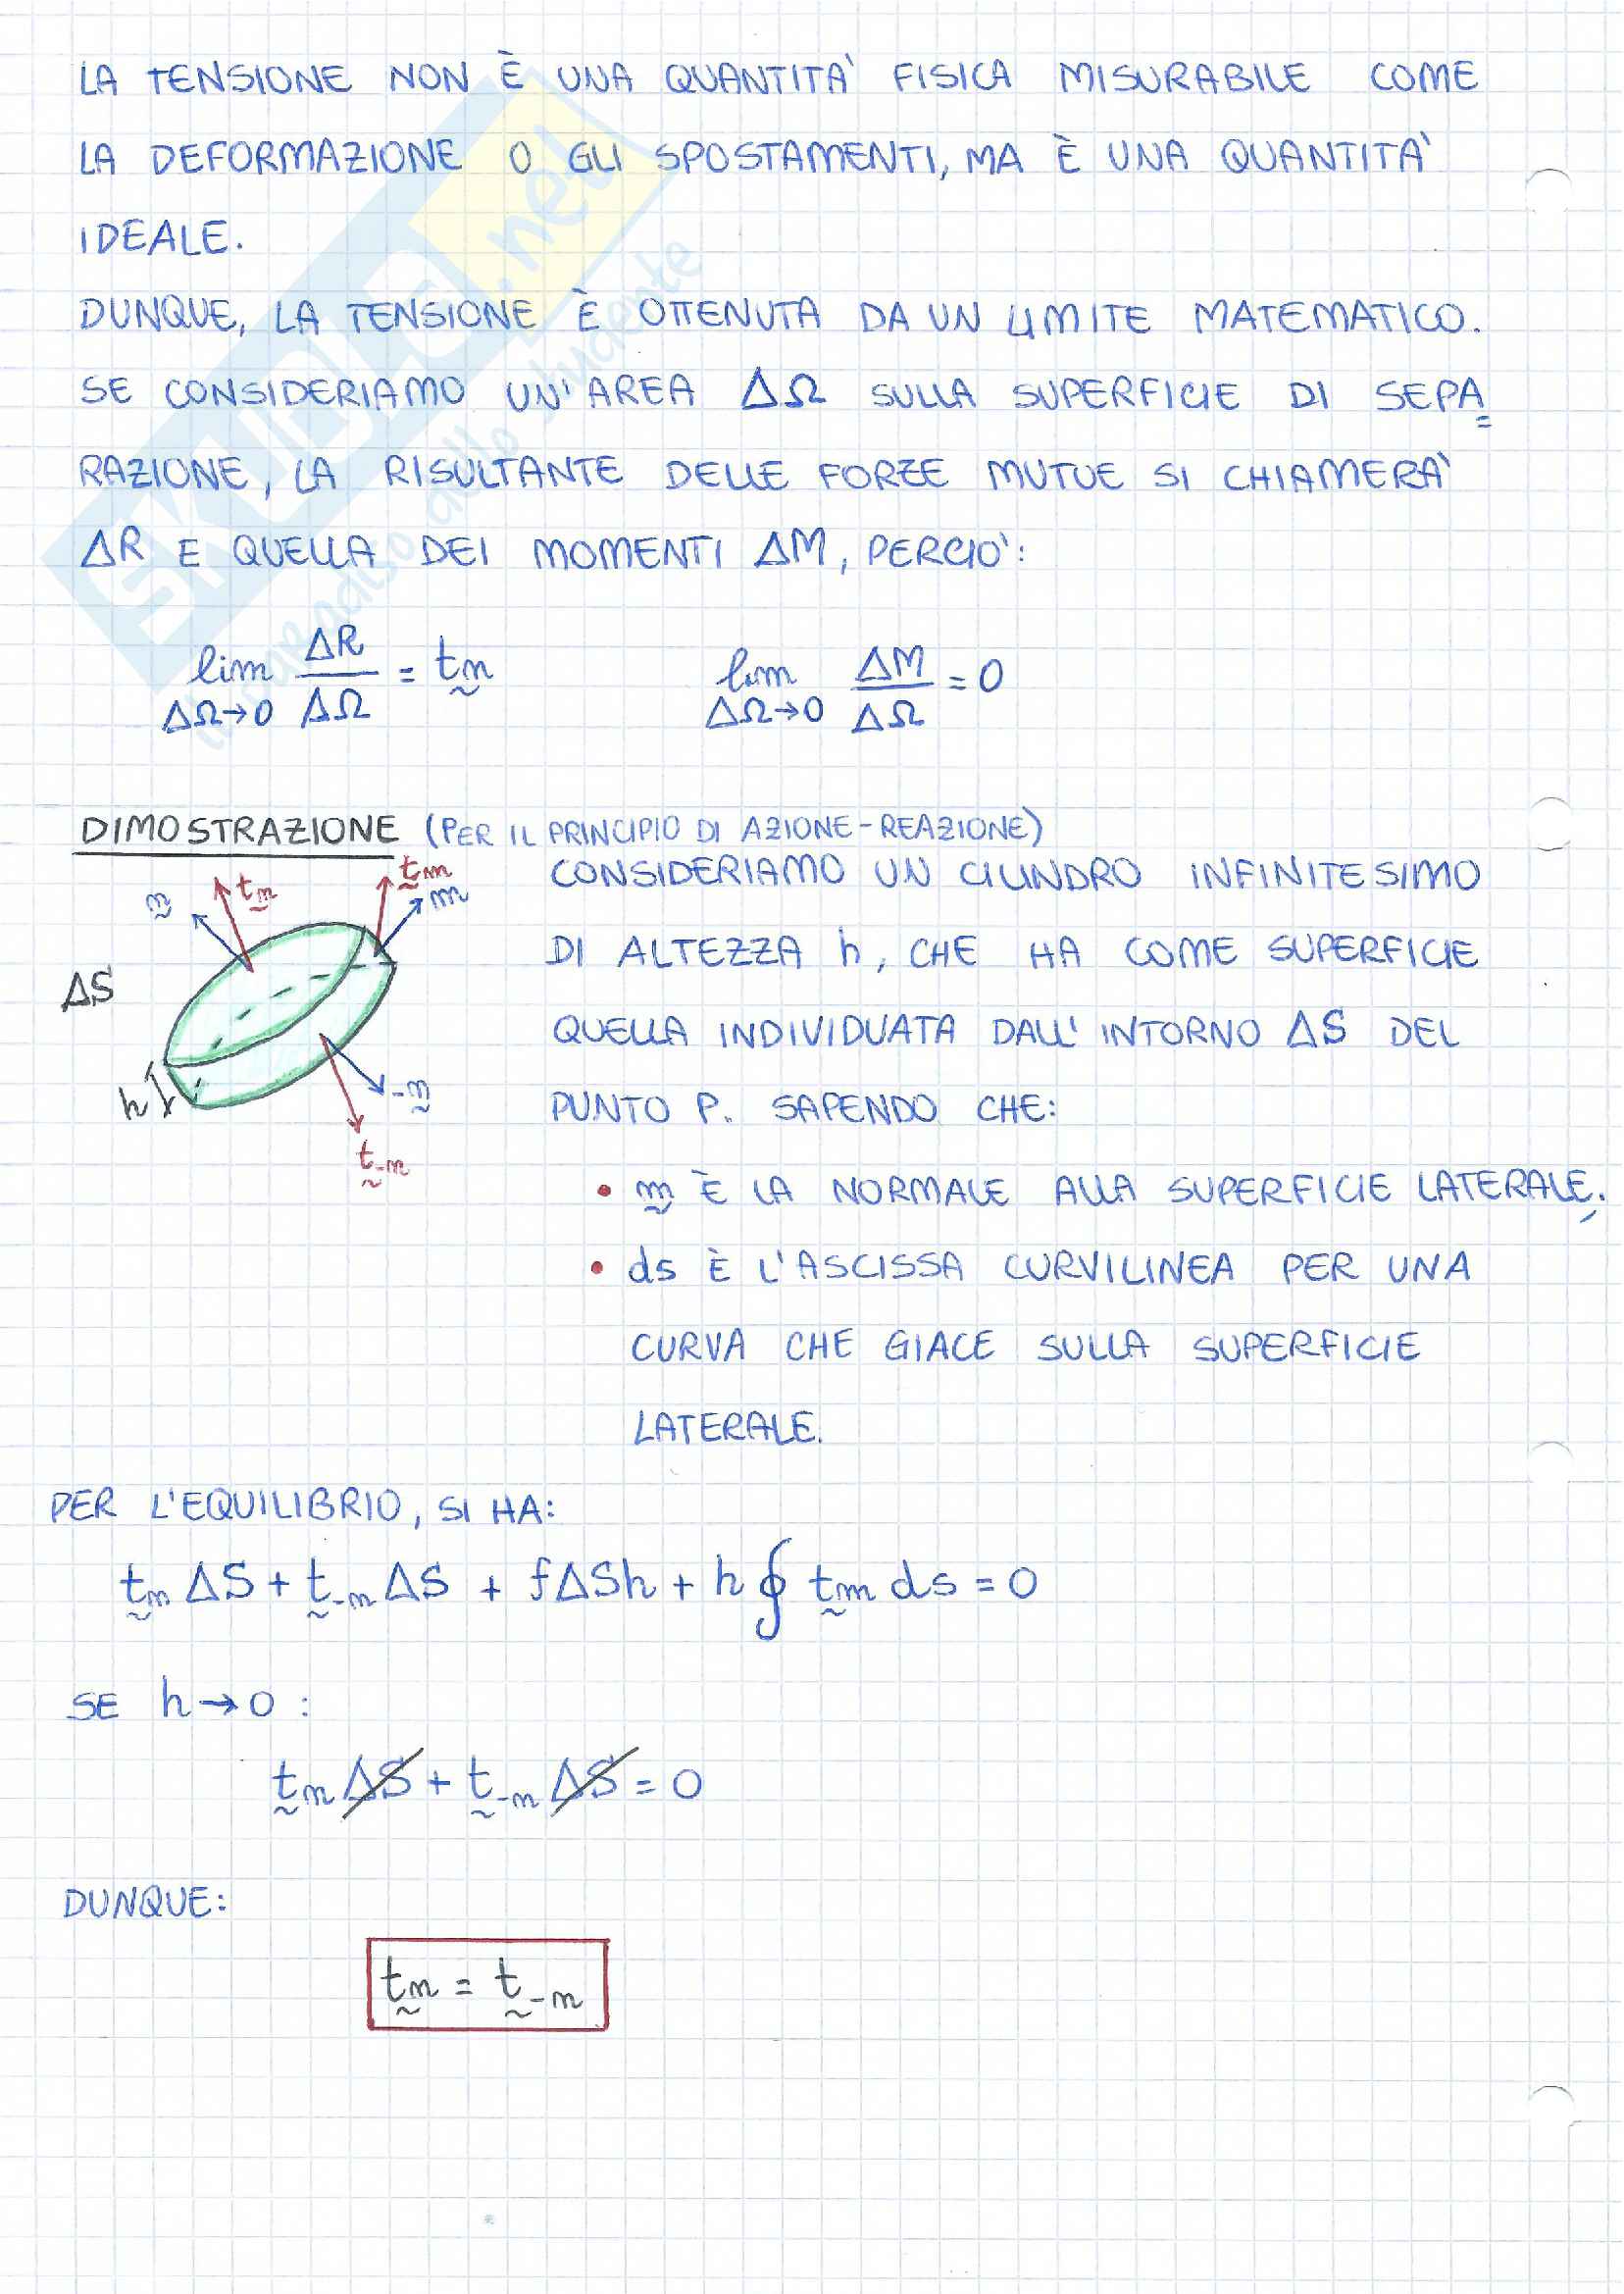 LA TENSIONE NON È UNA QUANTITA' FISICA MISURABILE COME
LA DEFORMAZIONE O GLI SPOSTAMENTI, MA È UNA QUANTITA'
IDEALE.
DUNQUE, LA TENSIONE È OTTENUTA DA UN LIMITE MATEMATICO.
SE CONSIDERIAMO UN'AREA ΔΩ SULLA SUPERFICIE DI SEPA=
RAZIONE, LA RISULTANTE DELLE FORZE MUTUE SI CHIAMERA'
ΔR E QUELLA DEI MOMENTI ΔM, PERCIO':
lim ΔΩ→0 ΔR/ΔΩ = t̰n lim ΔΩ→0 ΔM/ΔΩ = 0
DIMOSTRAZIONE (PER IL PRINCIPIO DI AZIONE-REAZIONE)
n t̰n t̰m m
ΔS
h
-n
t̰-n
CONSIDERIAMO UN CILINDRO INFINITESIMO
DI ALTEZZA h, CHE HA COME SUPERFICIE
QUELLA INDIVIDUATA DALL'INTORNO ΔS DEL
PUNTO P. SAPENDO CHE:
• m È LA NORMALE ALLA SUPERFICIE LATERALE.
• ds È L'ASCISSA CURVILINEA PER UNA
CURVA CHE GIACE SULLA SUPERFICIE
LATERALE.
PER L'EQUILIBRIO, SI HA:
t̰n ΔS + t̰-n ΔS + fΔSh + h∮ t̰m ds = 0
SE h→0 :
t̰n ΔS + t̰-n ΔS = 0
DUNQUE:
t̰n = t̰-n
SKUOLA.net
il paradiso dello studente